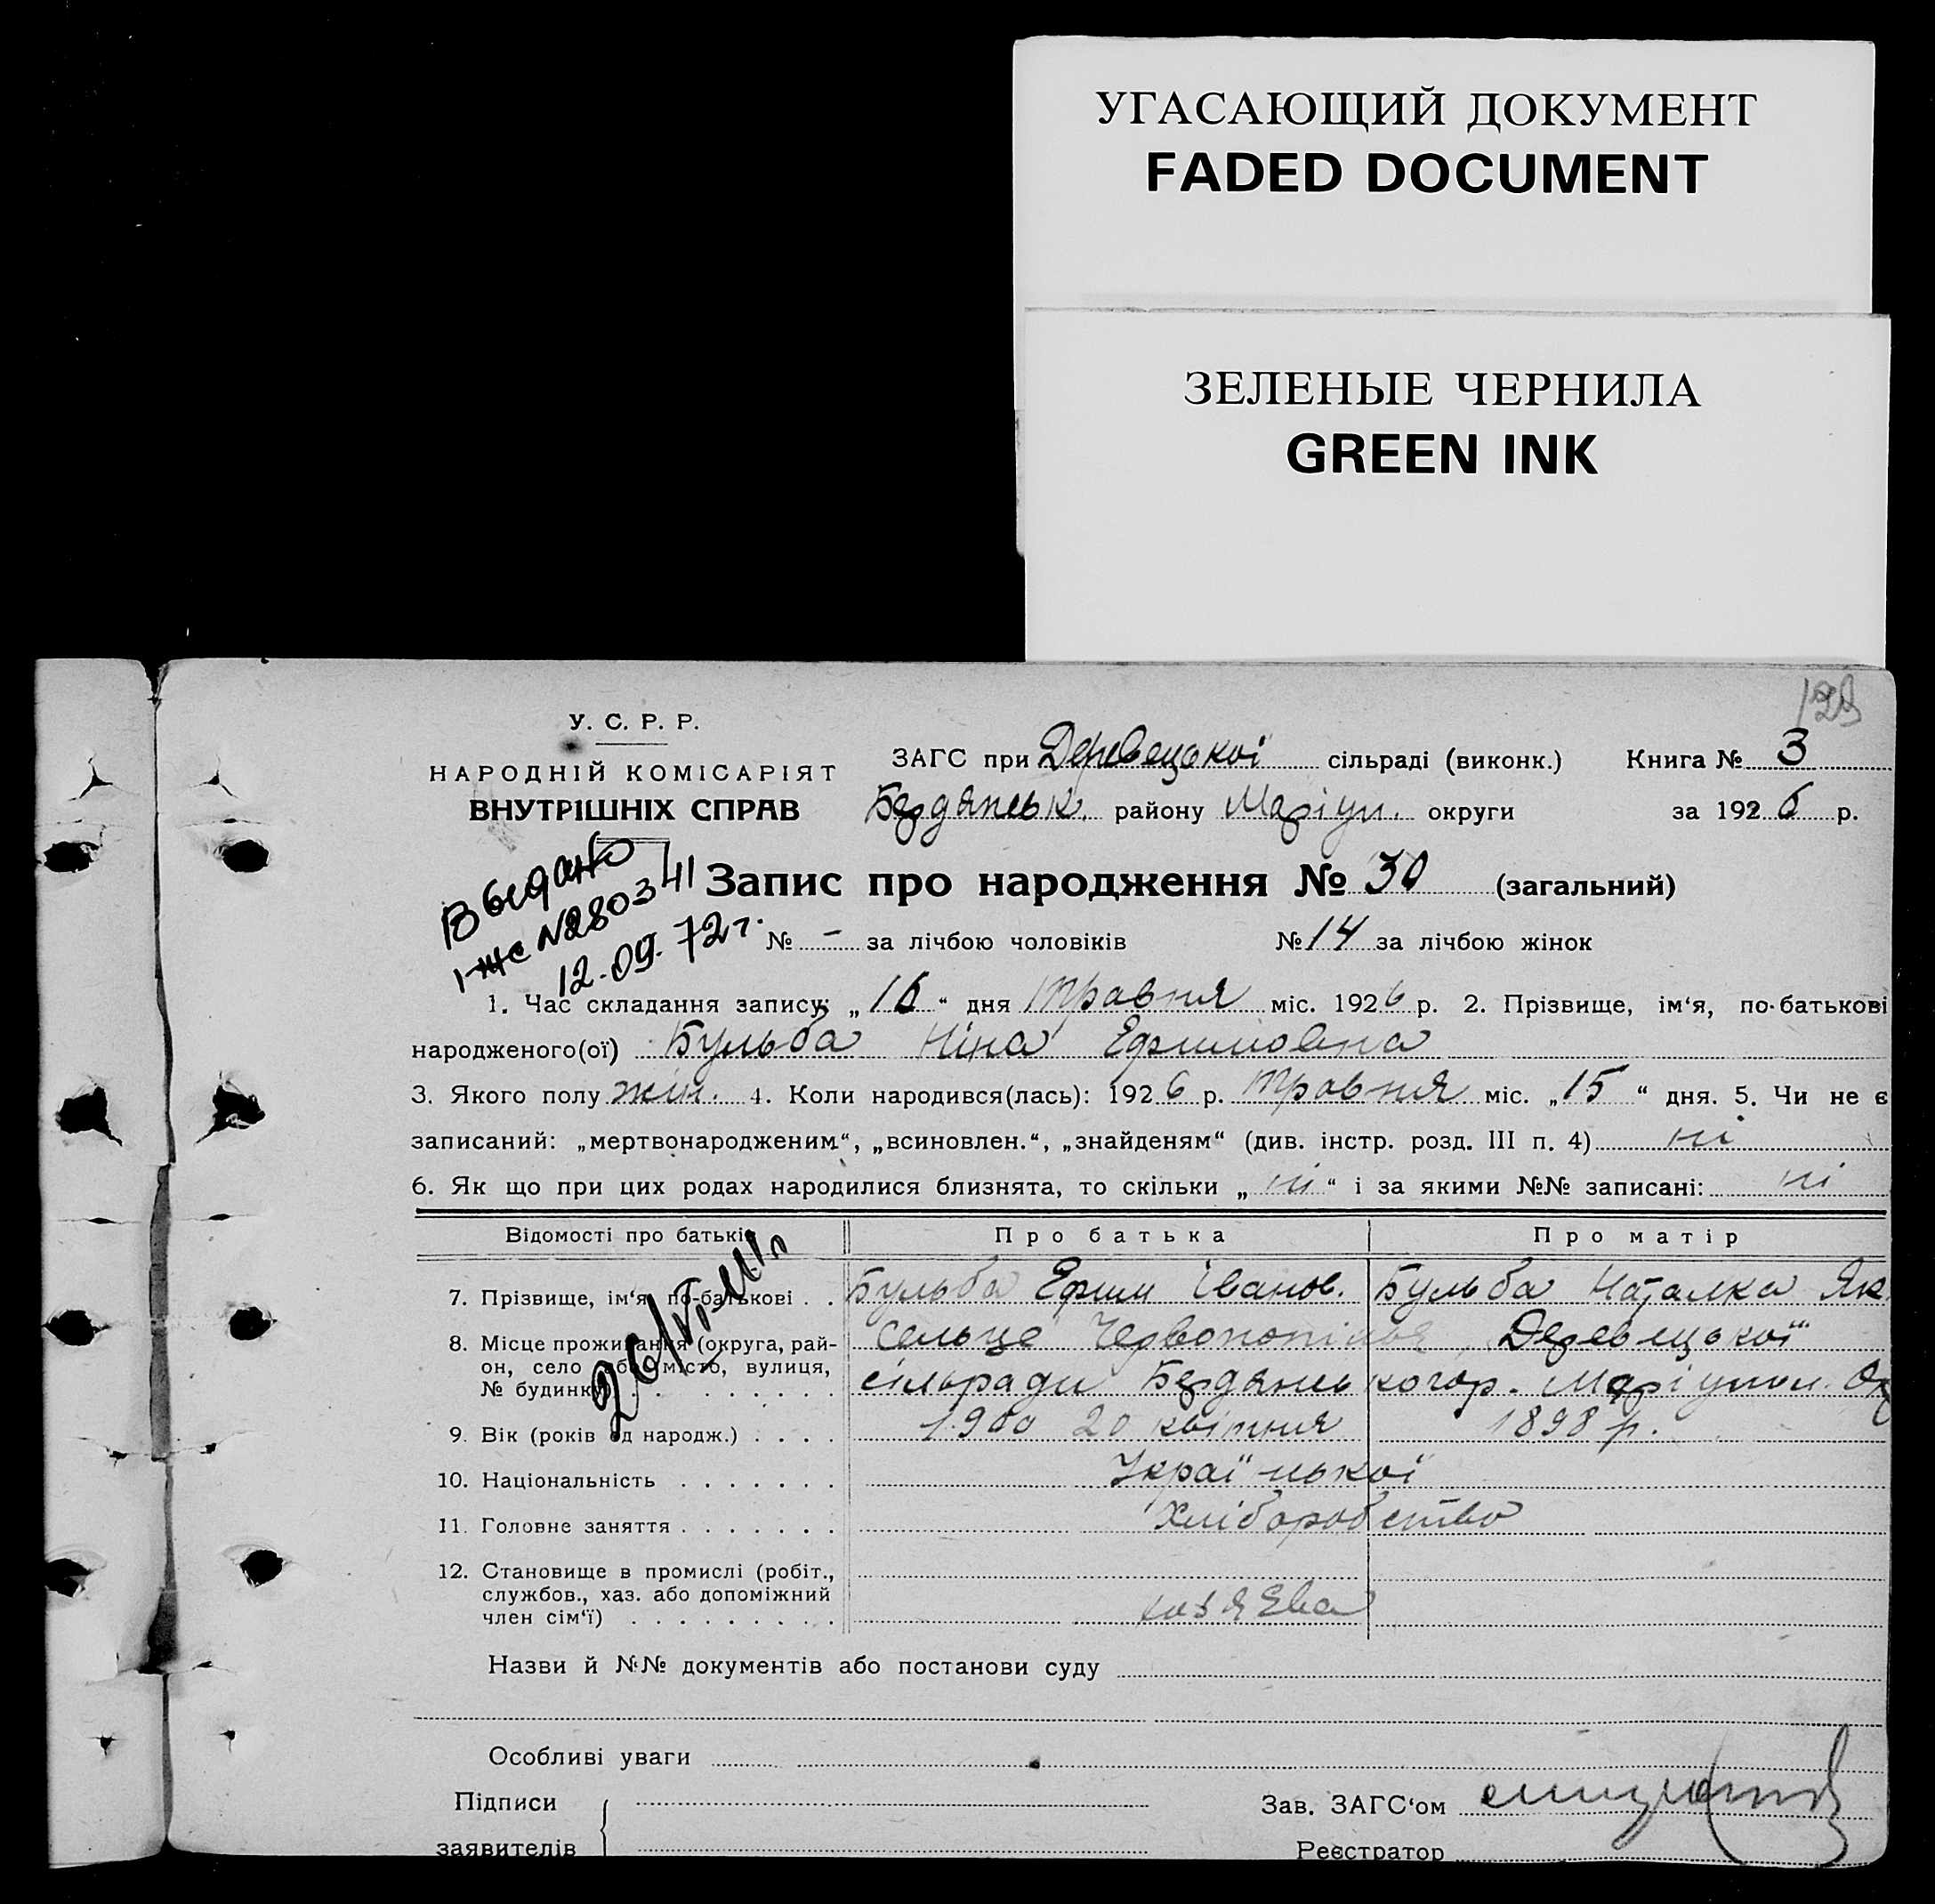 УГАСАЮЩИЙ ДОКУМЕНТ
FADED DOCUMENT
ЗЕЛЕНЫЕ ЧЕРНИЛА
GREEN INK
У. С. Р. Р.
НАРОДНІЙ КОМІСАРІЯТ
ВНУТРІШНІХ СПРАВ
ЗАГС при Деревецької сільраді (виконк.) Книга № 3
Бердянськ. району Маріуп. округи за 1926 р.
Выдано
І-жс №280341
12.09.72 г.
Запис про народження № 30 (загальний)
№ - за лічбою чоловіків № 14 за лічбою жінок
1. Час складання запису: „16“ дня травня міс. 1926 р. 2. Прізвище, ім‘я, по-батькові
народженого(ої) Бульба Ніна Ефимовна
3. Якого полу жін. 4. Коли народився(лась): 1926 р. травня міс. „15“ дня. 5. Чи не є
записаний: „мертвонародженим“, „всиновлен.“, „знайденям“ (див. інстр. розд. III п. 4) ні
6. Як що при цих родах народилися близнята, то скільки „ні“ і за якими №№ записані: ні
Відомості про батьків Про батька Про матір
7. Прізвище, ім‘я, по-батькові . . Бульба Ефим Іванов. Бульба Наталка Як.
8. Місце проживання (округа, рай- сельце Червонопілля, Деревецької
он, село або місто, вулиця, сільради Бердянськогор. Маріупол. Ок
№ будинку) . . . . . . . . . .
9. Вік (років од народж.) . . . . 1900 20 квітня 1898 р.
10. Національність . . . . . . . Українької
11. Головне заняття . . . . . . . Хліборобство
12. Становище в промислі (робіт.,
службов., хаз. або допоміжний
член сім‘ї) . . . . . . . . . хозяева
Назви й №№ документів або постанови суду
Особливі уваги
Підписи
заявителів
Зав. ЗАГС‘ом
Реєстратор